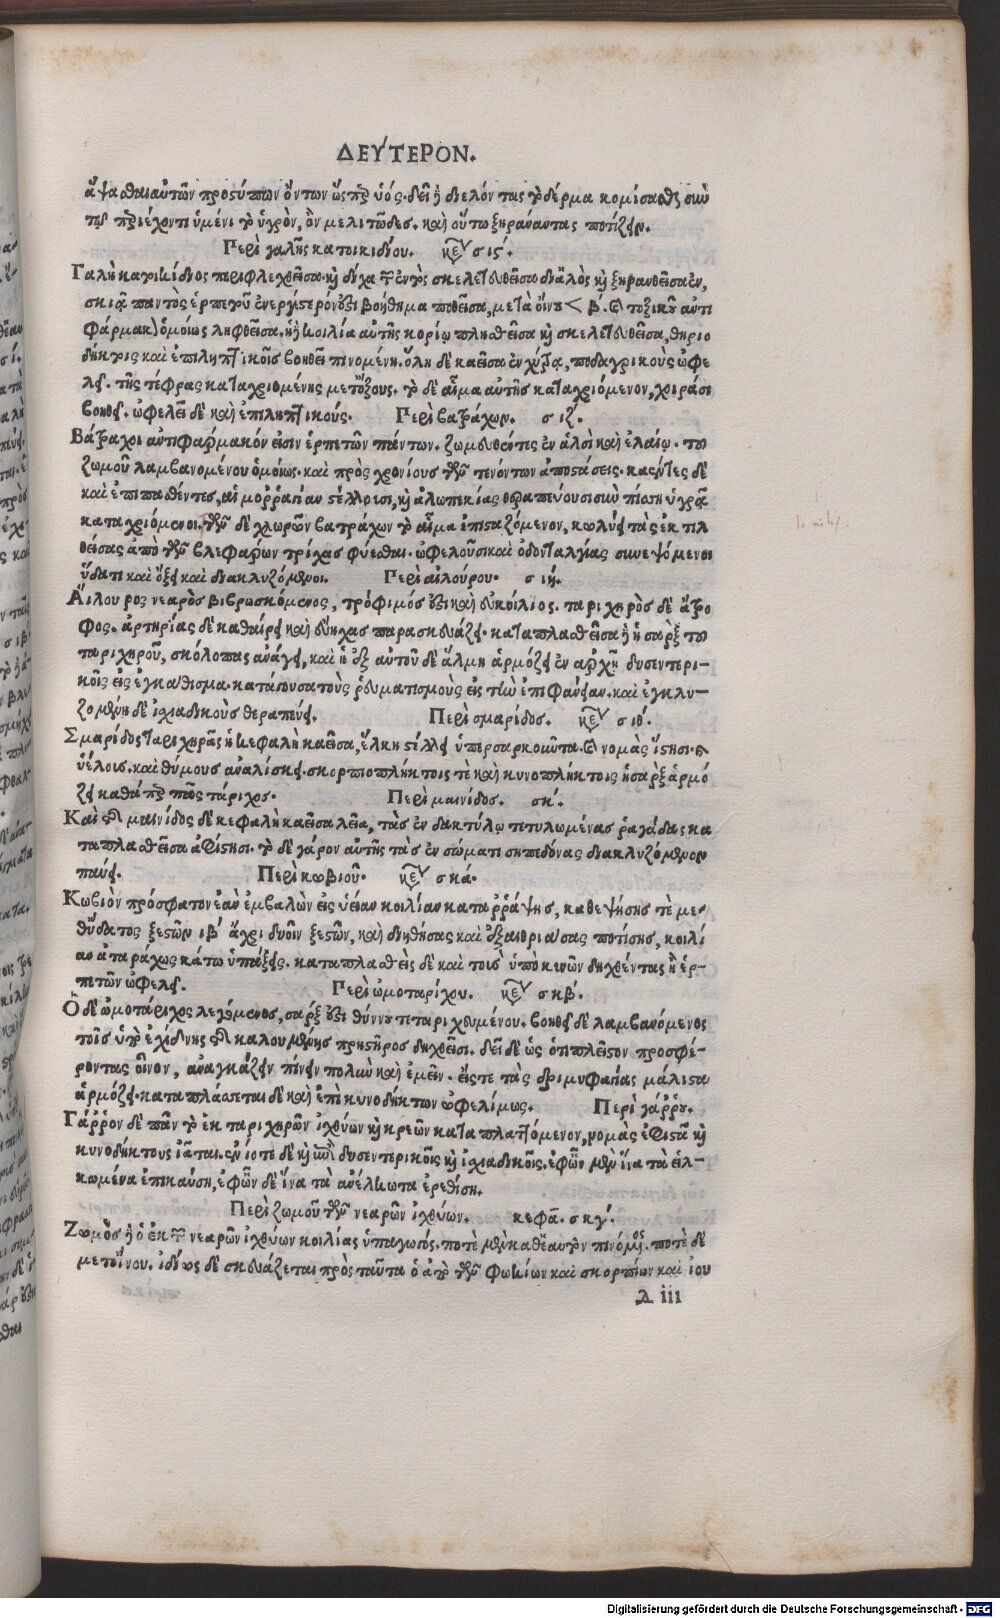 ΔΕΥΤΕΡΟΝ.
ἅψασθαι αὐτῶν προστύπων ὄντων ὥσπερ ὑός. δεῖ ἢ διελόντας τὸ δέρμα κομίσασθαι σὺν
τῷ περιέχοντι ὑμένι τὸ ὑγρὸν, ὂν μελιτῶδες. καὶ οὕτω ξηράναντας ποτίζειν.
Περὶ γαλῆς κατοικιδίου. κεφ σις΄.
Γαλῆ κατοικίδιος περιφλεχθεῖσα καὶ δίχα τῶν ἐντὸς σκελετευθεῖσα δι᾽ ἁλὸς καὶ ξηρανθεῖσα ἐν
σκιᾷ παντὸς ἑρπετοῦ ἐνεργέστερόν ἐστι βοήθημα ποθεῖσα, μετὰ οἴνου < β. καὶ τοξικοῦ ἀντι
φάρμακον ὁμοίως ληφθεῖσα. ἡ ἢ κοιλία αὐτῆς κορίῳ πλησθεῖσα καὶ σκελετευθεῖσα, θηριο
δήκτοις καὶ ἐπιληπτικοῖς βοηθεῖ πινομένη. ὅλη δὲ καεῖσα ἐν χύτρᾳ, ποδαγρικοὺς ὠφε
λεῖ. τῆς τέφρας καταχριομένης μετ᾽ ὄξους. τὸ δὲ αἷμα αὐτῆς καταχριόμενον, χοιράσι
βοηθεῖ. ὠφελεῖ δὲ καὶ ἐπιληπτικούς. Περὶ βατράχων. σ ιζ΄.
Βάτραχοι ἀντιφάρμακόν εἰσιν ἑρπετῶν πάντων. ζωμευθέντες ἐν ἁλσὶ καὶ ἐλαίῳ. τοῦ
ζωμοῦ λαμβανομένου ὁμοίως. καὶ πρὸς χρονίους τῶν τενόντων ἀποστάσεις. καέντες δὲ
καὶ ἐπιπασθέντες, αἱμορραγίαν στέλλουσι, καὶ ἀλωπεκίας θεραπεύουσι σὺν πίσσῃ ὑγρᾷ
καταχριόμενοι. τῶν δὲ χλωρῶν βατράχων τὸ αἷμα ἐπισταζόμενον, κωλύει τὰς ἐκτιλ
θείσας ἀπὸ τῶν βλεφάρων τρίχας φύεσθαι. ὠφελοῦσι καὶ ὀδονταλγίας συνεψόμενοι
ὕδατι καὶ ὄξει καὶ διακλυζόμενοι. Περὶ αἰλούρου. σ ιή.
Αἴλουρος νεαρὸς βιβρωσκόμενος, τρόφιμός ἐστι καὶ εὐκοίλιος. ταριχηρὸς δὲ ἄτρο
φος. ἀρτηρίας δὲ καθαίρει καὶ εὐήχας παρασκευάζει. καταπλασθεῖσα ἢ ἡ σὰρξ τοῦ
ταριχηροῦ, σκόλοπας ἀνάγει, καὶ ἡ ἐξ αὐτοῦ δὲ ἅλμη ἁρμόζει ἐν ἀρχῇ δυσεντερι-
κοῖς εἰς ἐγκάθισμα. κατάγουσα τοὺς ῥευματισμοὺς εἰς τὴν ἐπιφάνειαν. καὶ ἐγκλυ-
ζομένη δὲ ἰσχιαδικοὺς θεραπεύει. Περὶ σμαρίδος. κεφ σ ιθ΄.
Σμαρίδος ταριχηρᾶς ἡ κεφαλὴ καεῖσα, ἕλκη στέλλει ὑπερσαρκοῦντα. καὶ νομὰς ἵστησι. καὶ
ὑέλοις. καὶ θύμους ἀναλίσκει. σκορπιοπλήκτοις τὲ καὶ κυνοπλήκτοις ἡ σὰρξ ἁρμό
ζει καθάπερ πᾶς τάριχος. Περὶ μαινίδος. σκ΄.
Καὶ τῆς μαινίδος δὲ κεφαλὴ καεῖσα λεία, τὰς ἐν δακτύλῳ τετυλωμένας ῥαγάδας κα
ταπλασθεῖσα ἀφίστησι. τὸ δὲ γάρον αὐτῆς τὰς ἐν σώματι σηπεδόνας διακλυζόμενον
παύει. Περὶ κωβιοῦ. κεφ σκά.
Κωβιὸν πρόσφατον ἐὰν ἐμβαλὼν εἰς ὑείαν κοιλίαν καταρράψῃς, καθεψήσῃς τὲ με-
θ᾽ ὕδατος ξεστῶν ιβ΄ ἄχρι δυοῖν ξεστῶν, καὶ διηθήσας καὶ ἐξαιθριάσας ποτίσῃς, κοιλί
αν ἀταράχως κάτω ὑπάξεις. καταπλασθεὶς δὲ καὶ τοὺς ὑπὸ κυνῶν δηχθέντας ἢ ἑρ-
πετῶν ὠφελεῖ. Περὶ ὠμοταρίχου. κεφ σκβ΄.
Ὁ δὲ ὠμοτάριχος λεγόμενος, σάρξ ἐστι θύννου τεταριχευμένου. βοηθεῖ δὲ λαμβανόμενος
τοῖς ὑπὸ ἐχίδνης τῆς καλουμένης πρηστῆρος δηχθεῖσι. δεῖ δὲ ὡς ὅτι πλεῖστον προσφέ-
ροντας οἶνον, ἀναγκάζειν πίνειν πολὺν καὶ ἐμεῖν. εἴς τε τὰς δριμυφαγίας μάλιστα
ἁρμόζει. καταπλάσσεται δὲ καὶ ἐπὶ κυνοδήκτων ὠφελίμως. Περὶ γάρρου.
Γάρρον δὲ πᾶν τὸ ἐκ ταριχηρῶν ἰχθύων καὶ κρεῶν καταπλαττόμενον, νομὰς ἐφιστᾷ καὶ
κυνοδήκτους ἰᾶται. ἐνίοτε δὲ καὶ ἐπὶ δυσεντερικοῖς καὶ ἰσχιαδικοῖς. ἐφ᾽ ὧν μὲν ἵνα τὰ εἱλ-
κωμένα ἐπικαύσῃ, ἐφ᾽ ὧν δὲ ἵνα τὰ ἀνέλκωτα ἐρεθίσῃ.
Περὶ ζωμοῦ τῶν νεαρῶν ἰχθύων. κεφά. σκγ΄.
Ζωμὸς ἢ ὁ ἐκ τῶν νεαρῶν ἰχθύων κοιλίας ὑπαγωγός. ποτὲ μὲν καθ᾽ ἑαυτὸν πινόμενος. ποτὲ δὲ
μετ᾽ οἴνου. ἰδίως δὲ σκευάζεται πρὸς ταῦτα ὁ ἀπὸ τῶν φωκίων καὶ σκορπίων καὶ ἰου
Δ iii
Digitalisierung gefördert durch die Deutsche Forschungsgemeinschaft - DFG